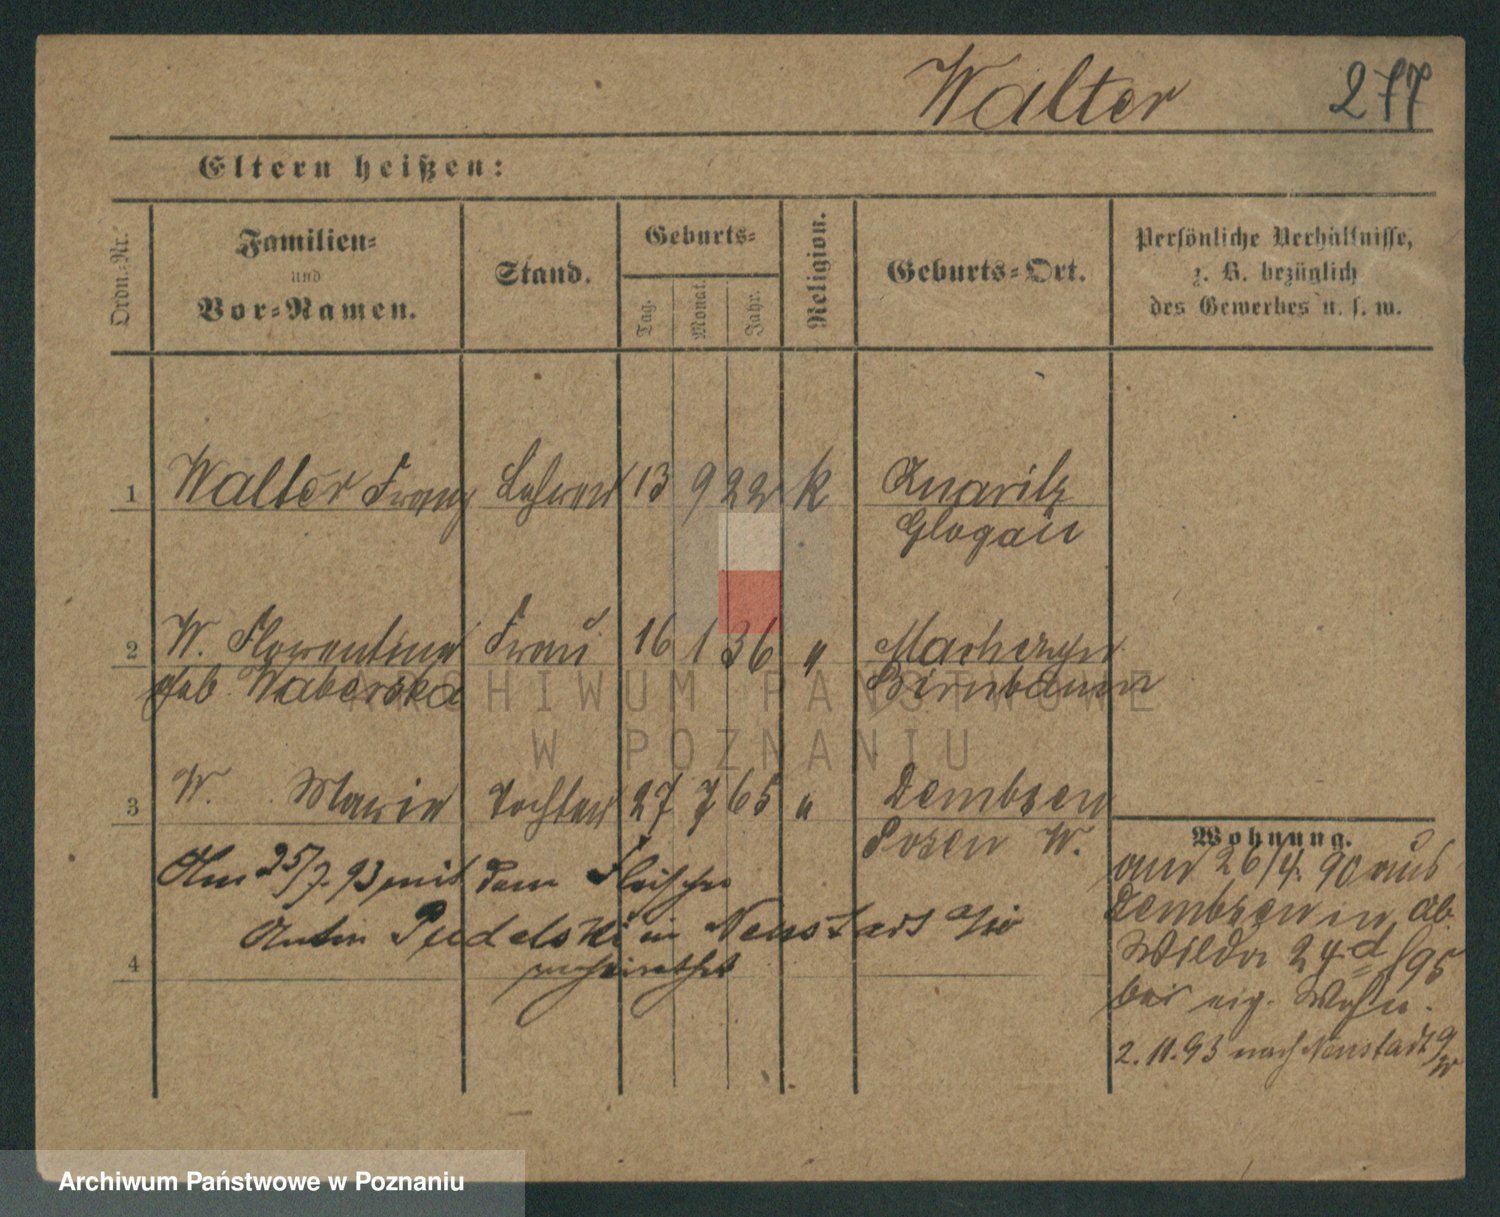 Walter 277
Eltern heißen:
Ordn.-Nr.
Familien-
und
Vor-Namen.
Stand.
Geburts-
Tag.
Monat.
Jahr.
Religion.
Geburts-Ort.
Persönliche Verhältnisse,
z. B. bezüglich
des Gewerbes u. s. w.
1 Walter Franz Lehrer 13 9 22 k
Glogau
2 W. Florentine Frau 16 1 36 "
geb Waberska Birnbaum
3 W. Marie Tochter 27 7 65 " Dembsen
Posen W.
Wohnung.
Am 25/7. 93 mit dem Fleischer
Anton Pudelski in Neustadt
verheirathet
4
26/4. 90 aus
Dembsen in Ob.
Wilda 24 d
bei eig. Wohn.
2. 11. 93 nach Neustadt
ARCHIWUM PAŃSTWOWE
W POZNANIU
Archiwum Państwowe w Poznaniu